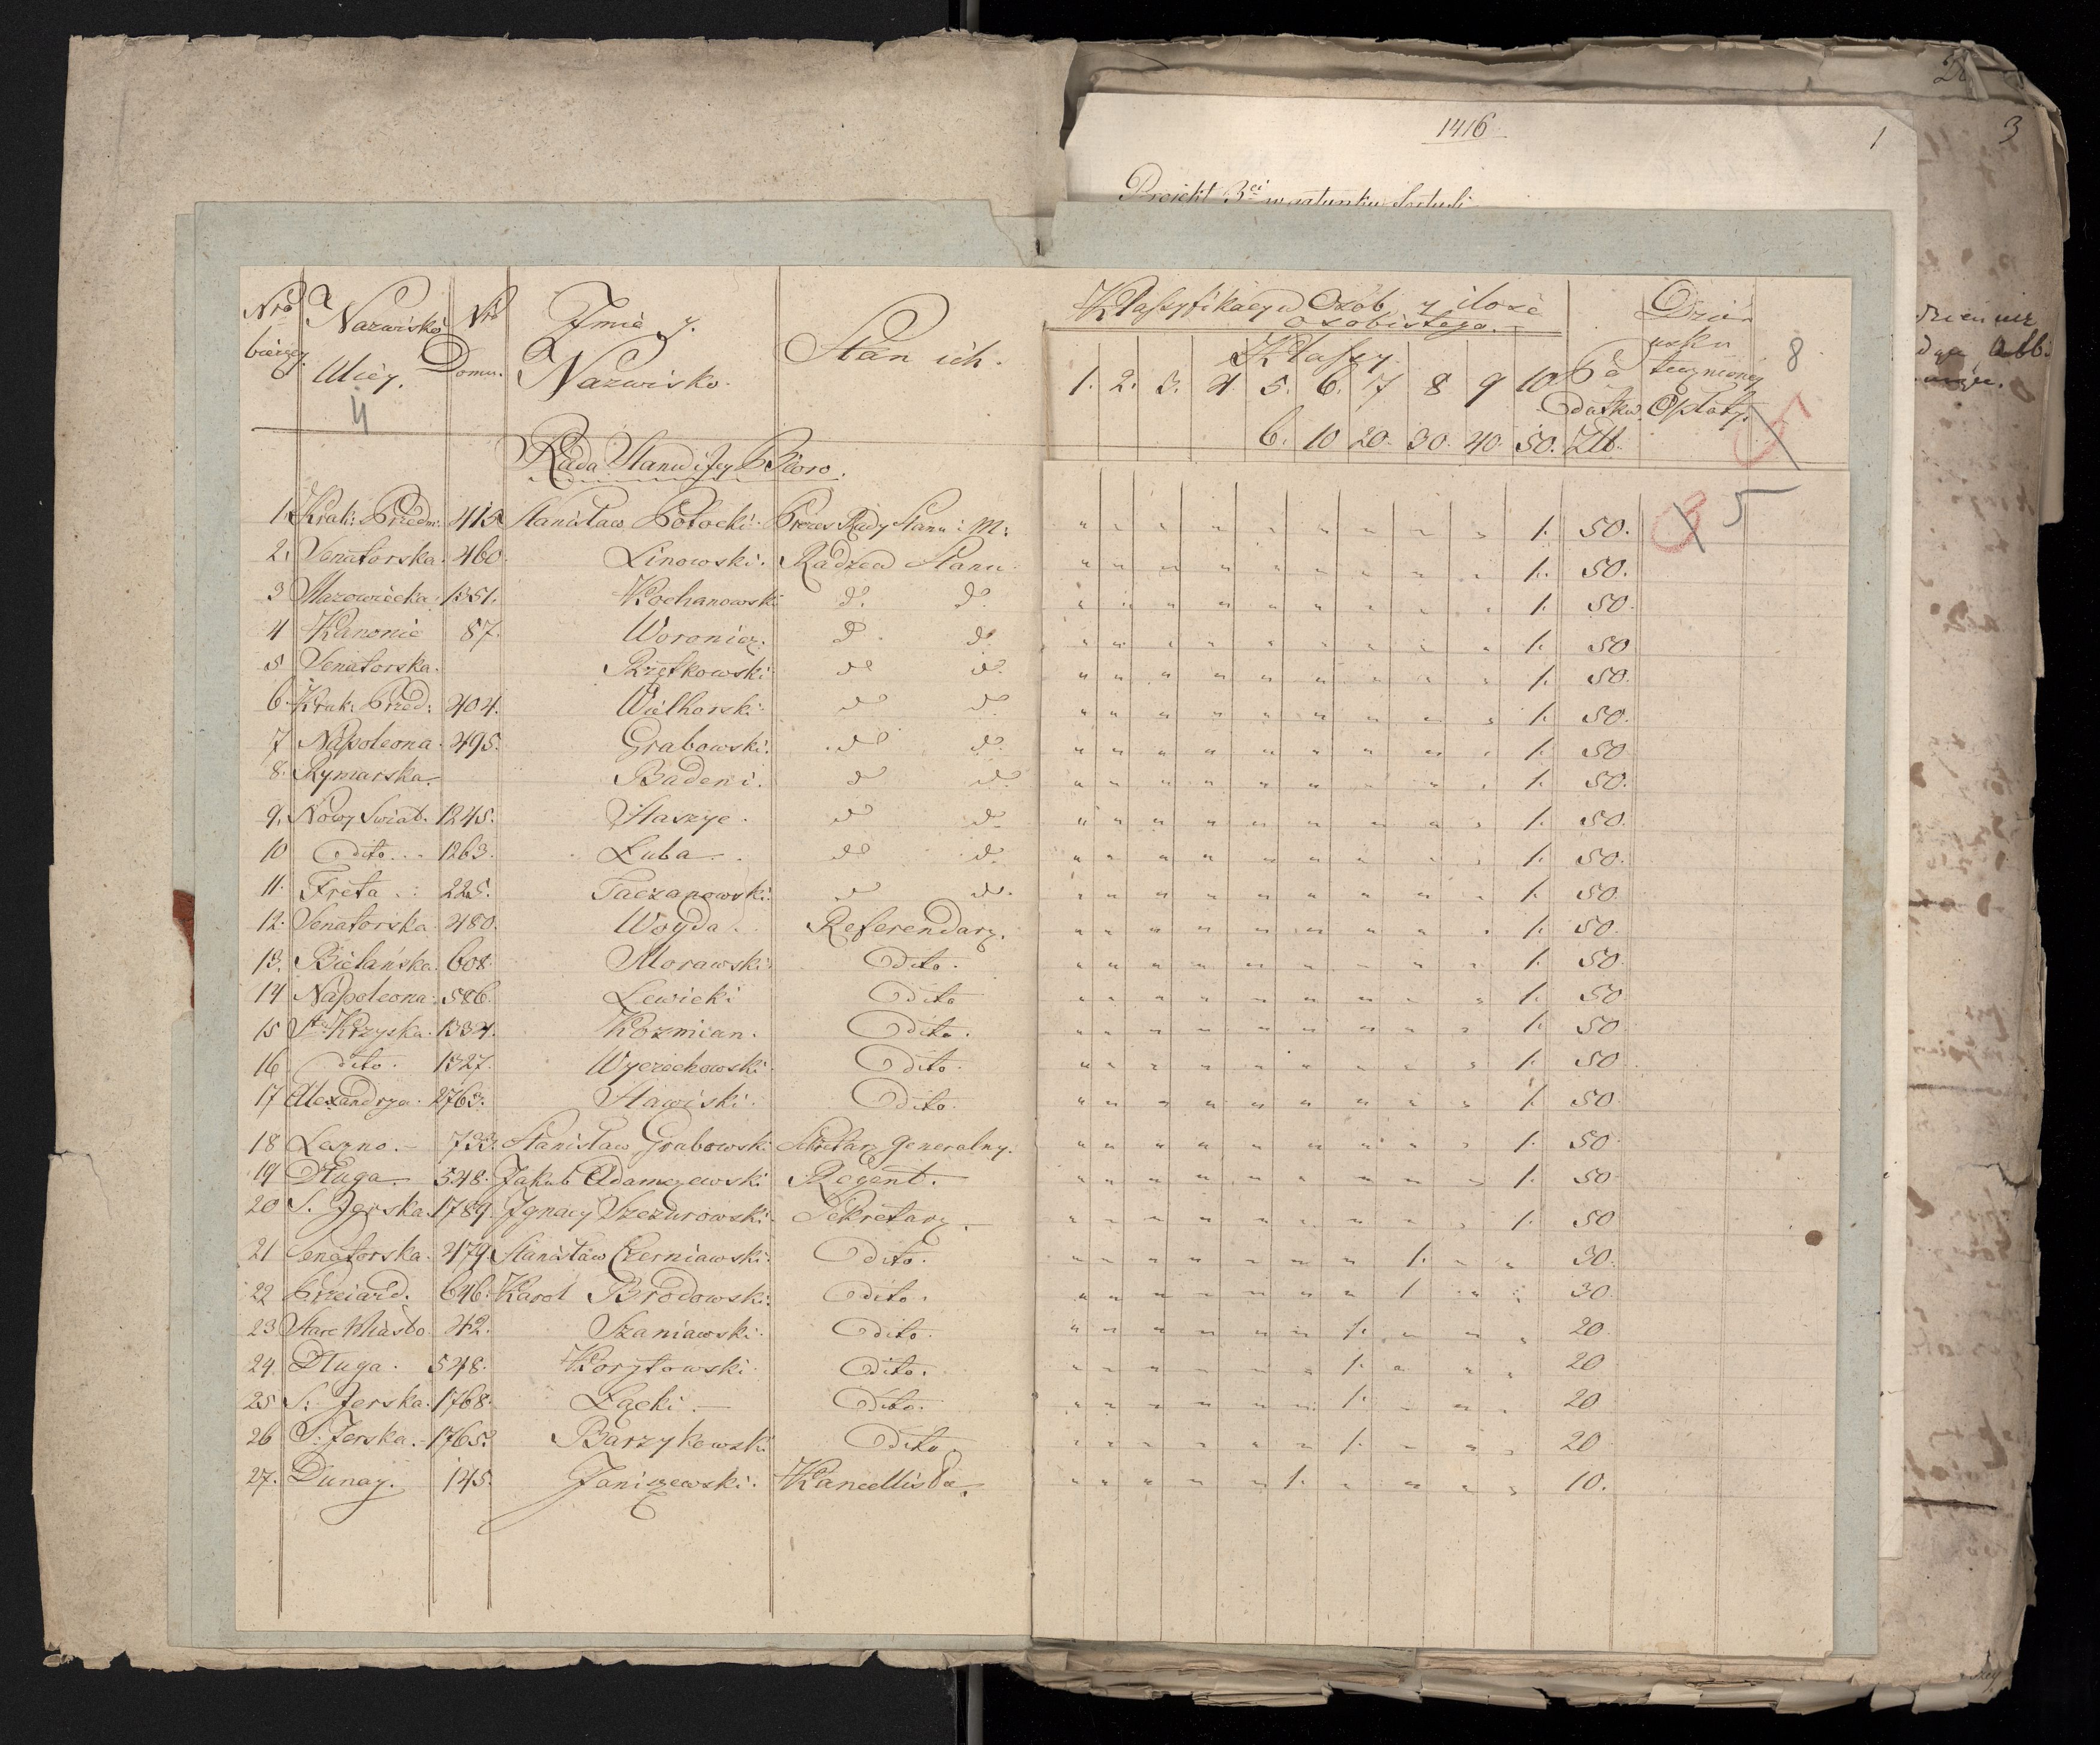 1416
1
3
Projekt 3ci w gatunku
Nro bieżący
Nazwisko Ulicy.
Nro Domu.
Jmie y Nazwisko.
Stan ich.
Klassyfikacya Osób y ilość
osobistego.
Klassy.
1. 2. 3. 4. 5. 6. 7 8 9 10
6. 10 20. 30. 40. 50. Złt.
Podatku
Dzień
uskutecznioney
Opłaty.
8
4
5
Rada Stanu i Jey Bióro.
1. Krak: Przedm. 415 Stanisław Potocki. Prezes Rady Stanu i M: " " " " " " " " " 1. 50.
2. Senatorska. 460. Linowski. Radzca Stanu. " " " " " " " " " 1. 50.
3 Mazowiecka. 1351. Kochanowski do. do. " " " " " " " " " 1. 50.
4 Kanonie 87. Woronicz. do. do. " " " " " " " " " 1. 50
5 Senatorska. Rzętkowski do do. " " " " " " " " " 1. 50.
6. Krak: Przed: 404. Wielhorski. do do. " " " " " " " " " 1. 50.
7 Napoleona. 495. Grabowski. do do. " " " " " " " " " 1. 50
8. Rymarska. Badeni. do do. " " " " " " " " " 1. 50.
9. Nowy Swiat. 1245. Staszyc. do do. " " " " " " " " " 1. 50.
10 dito. 1263. Łuba. do do. " " " " " " " " " 1. 50.
11. Freta 225. Taczanowski. do do. " " " " " " " " " 1. 50.
12. Senatorska. 480. Woyda. Referendarz. " " " " " " " " " 1. 50.
13. Bielańska. 608. Morawski. Dito. " " " " " " " " " 1. 50.
14 Napoleona. 586. Lewicki Dito " " " " " " " " " 1. 50.
15 Sto Krzyska. 1334. Kozmian. Dito. " " " " " " " " " 1. 50
16 dito. 1327. Wyczechowski. Dito. " " " " " " " " " 1. 50
17 Alexandrya. 2763. Stawiski. Dito. " " " " " " " " " 1. 50
18 Leszno. 733. Stanisław Grabowski Sekretarz Generalny. " " " " " " " " " 1. 50
19 Długa 548. Jakub Adamczewski Regent. " " " " " " " " " 1. 50
20 S. Jerska. 1789. Jgnacy Szczurowski. Sekretarz. " " " " " " " " " 1. 50
21 Senatorska. 479. Stanisław Czerniawski. Dito. " " " " " " " 1. " " 30.
22 646. Karol Brodowski. Dito. " " " " " " " 1 " " 30
23 Stare Miasto 42. Szaniawski. Dito. " " " " " " 1. " " " 20.
24. Długa. 548. Korytowski. Dito. " " " " " " 1. " " " 20
25 S: Jerska. 1768. Łącki. Dito. " " " " " " 1. " " " 20
26 S. Jerska. 1765. Barzykowski Dito " " " " " " 1. " " " 20
27. Dunay. 145. Janiszewski. Kancellista. " " " " " 1. " " " " 10.